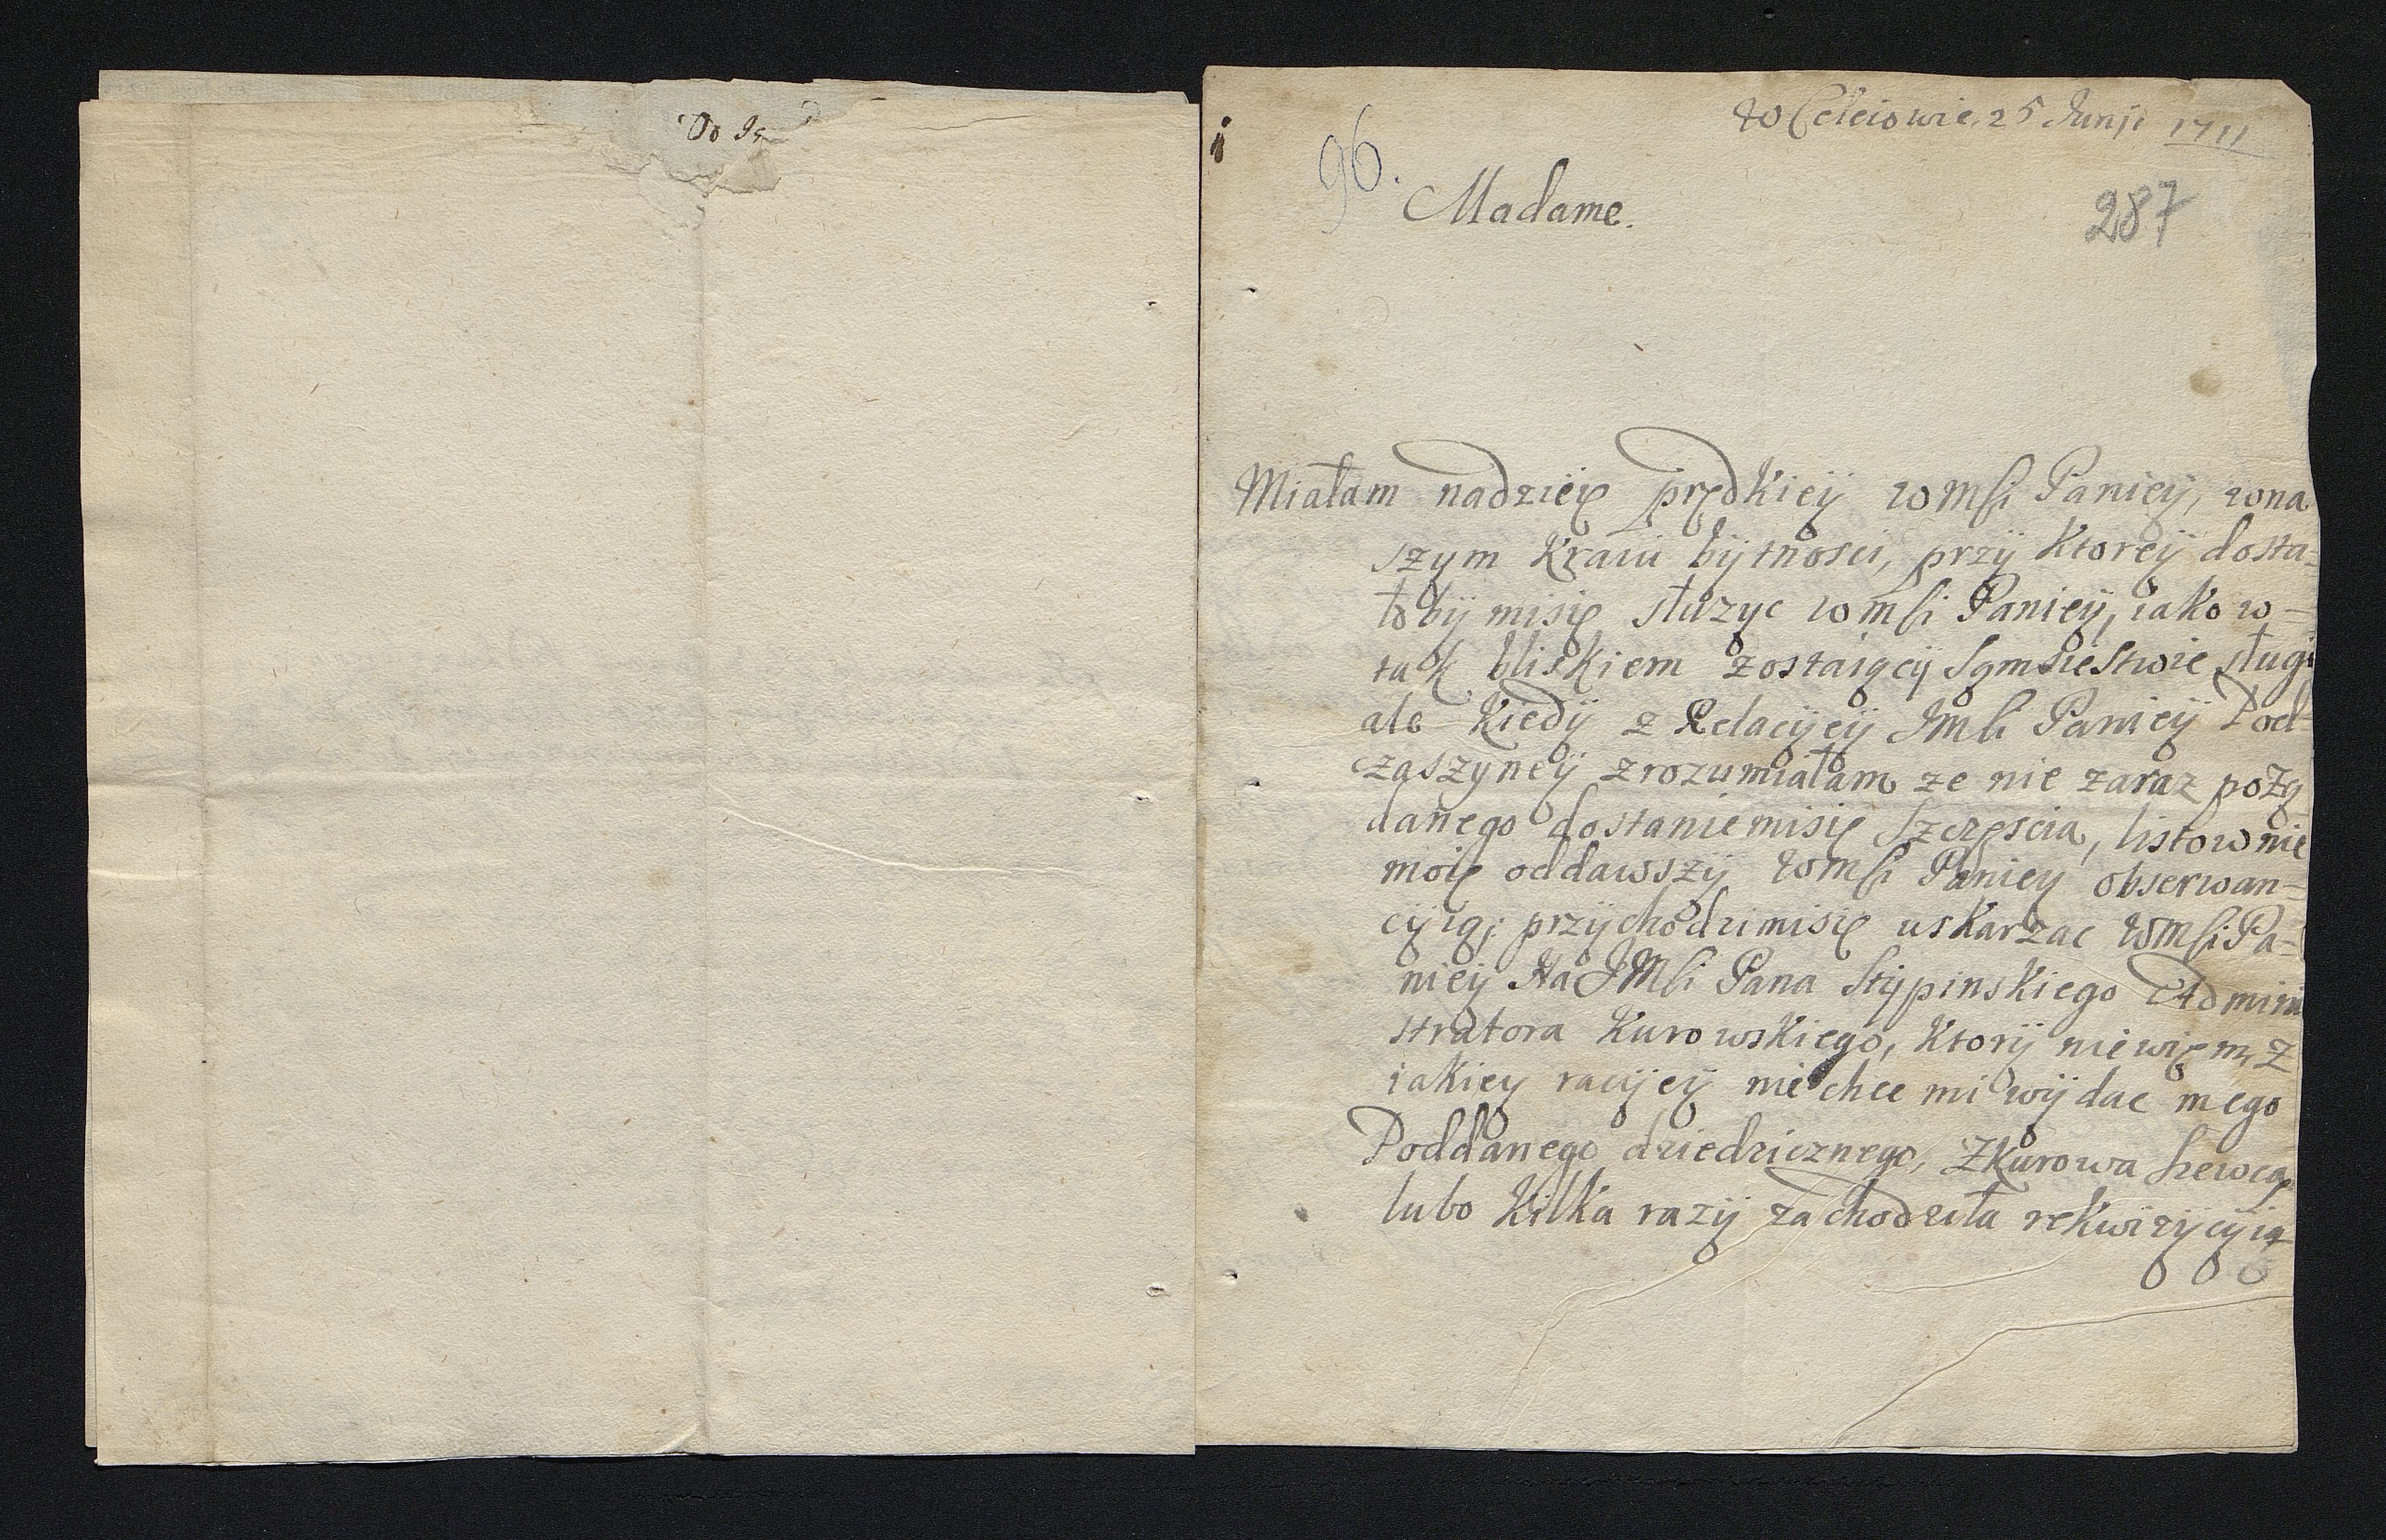 Do
w Celeiowie 25 Junji 1711
96.
Madame.
287
Miałam nadzieię prędkieij wmsci Panieij, wna
szym Kraiu bijtnosci, przij Ktoreij dosta-
ło bij misię słuzyc wmsci Panieij, iako w-
tak bliskiem zostaiąceij Sąmsiestwie sługi
ale Kiedij z Relacijeij JMści Panieij Pod-
czaszyneij zrozumiałam ze nie zaraz pożą
danego dostaniemisię Szczęscia, listownie
moię oddawszij wmsci Paniey obserwan-
cijią; przijchodzimisię uskarzac wmsciPa-
nieij Na JMści Pana Stijpinskiego Admini
stratora Kurowskiego, Ktorij niewięm, z
iakiey racijeij niechce mi wijdac mego
Poddanego dziedzicznego, zKurowa Szewca,
lubo Kilka razij zachodziła reKwizijcijią